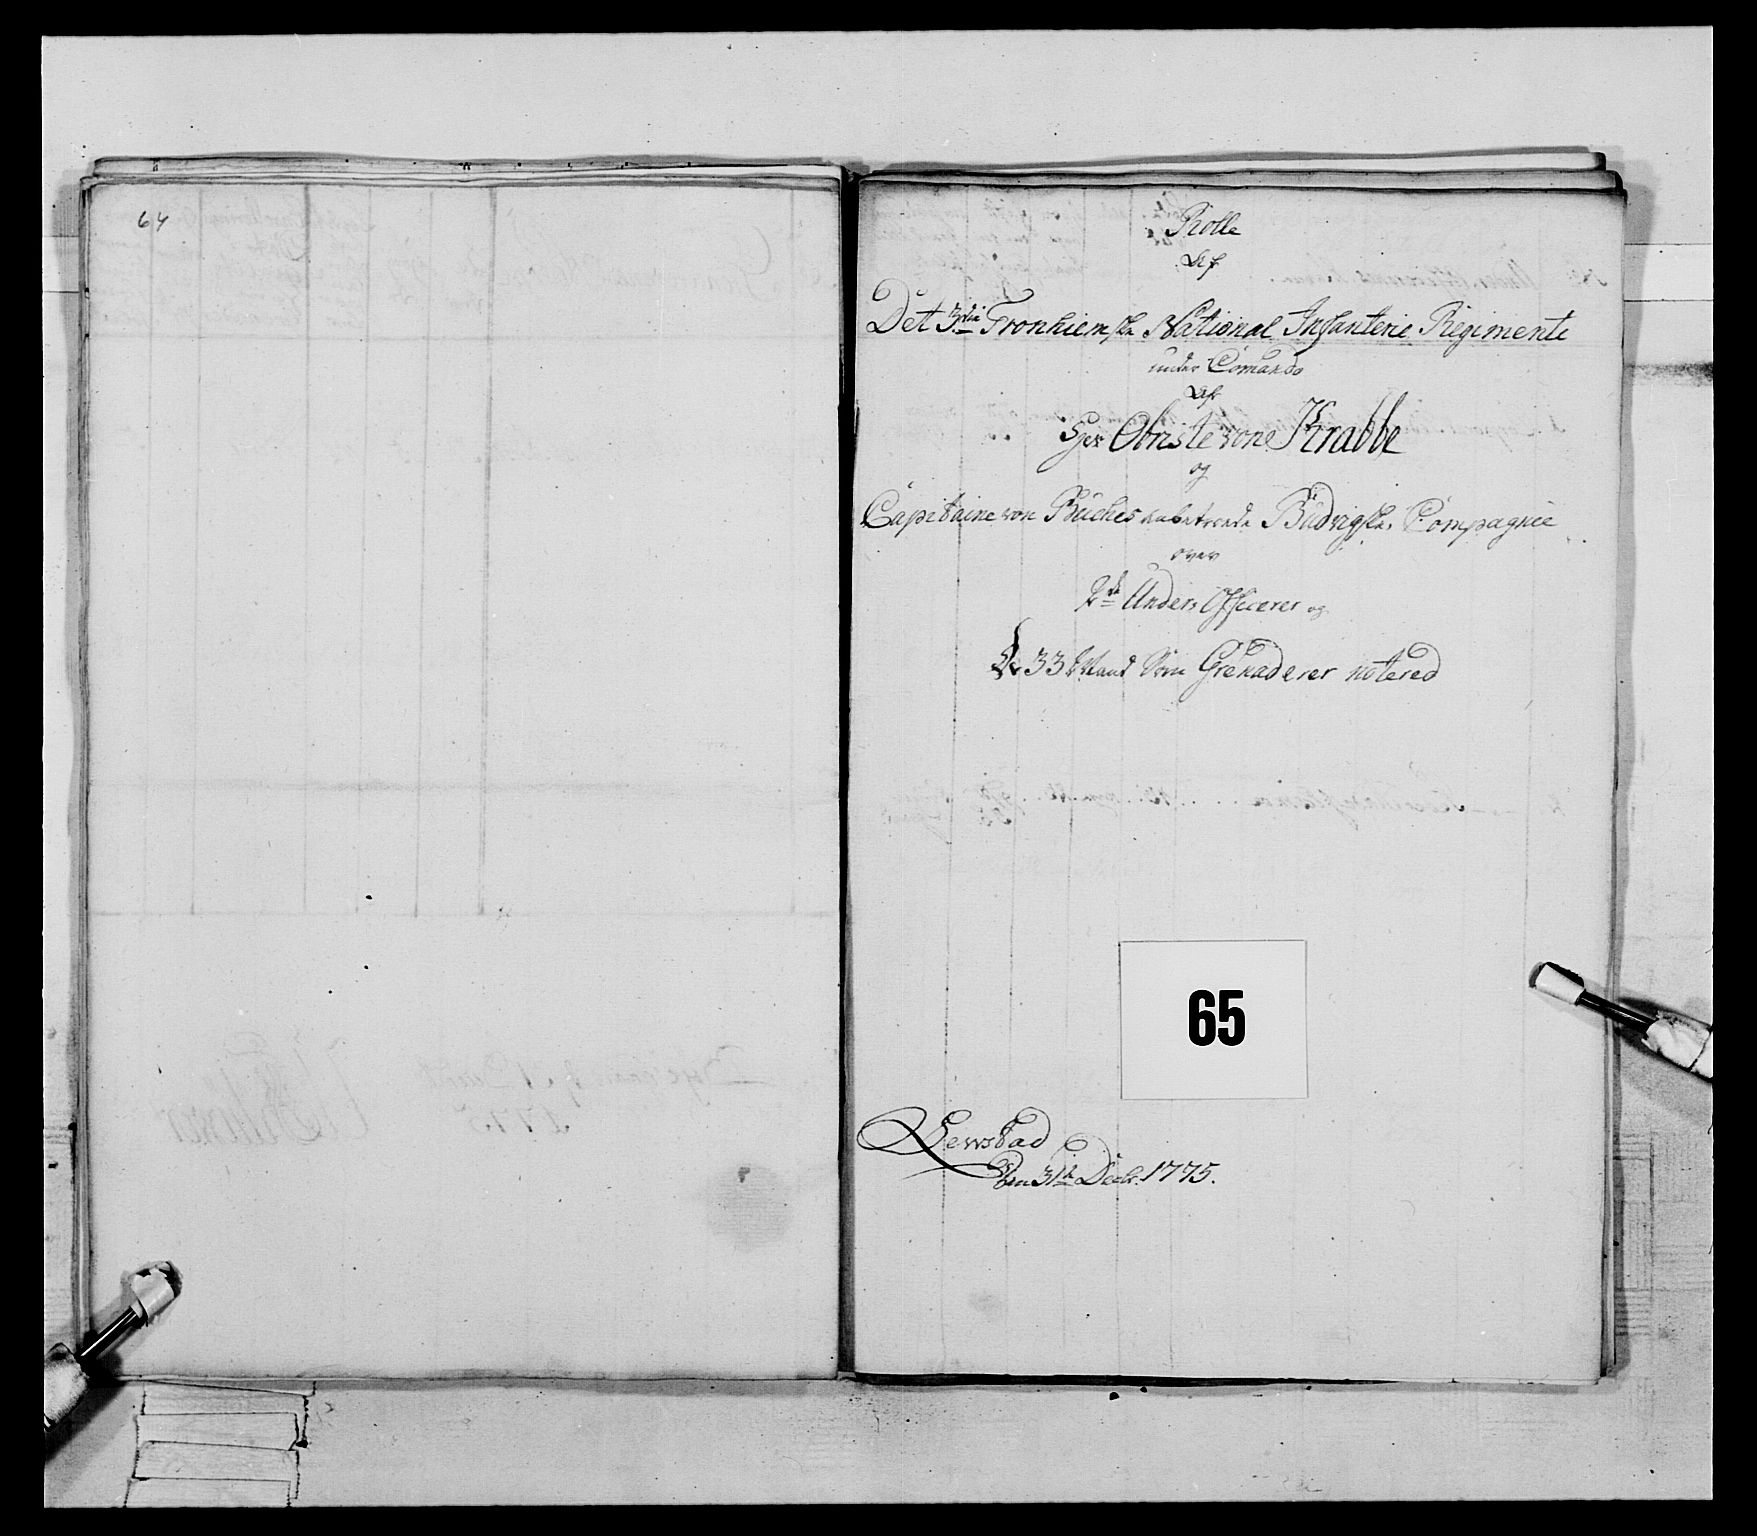 64
Rolle
Af
Det 3die Tronhiemske National Infanterie Regimente
under Comando
Af
Hr Obriste von Krabbe
og
Capitaine von Büches Compagnie
over
2de Under Officerer og
33 Mand Som Grenaderer notered
65
Lewstad
den 31te Decbr. 1775.